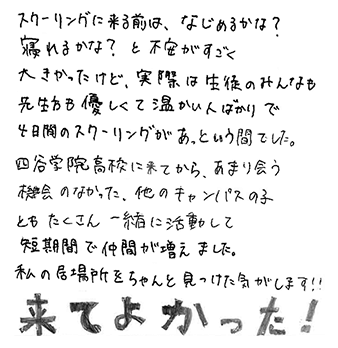 スクーリングに来る前は、なじめるかな?
寝れるかな? と不安がすごく
大きかったけど、実際は生徒のみんなも
先生方も優しくて温かい人ばかりで
4日間のスクーリングがあっという間でした。
四谷学院高校に来てから、あまり会う
機会のなかった、他のキャンパスの子
ともたくさん一緒に活動して
短期間で仲間が増えました。
私の居場所をちゃんと見つけた気がします!!
来てよかった!